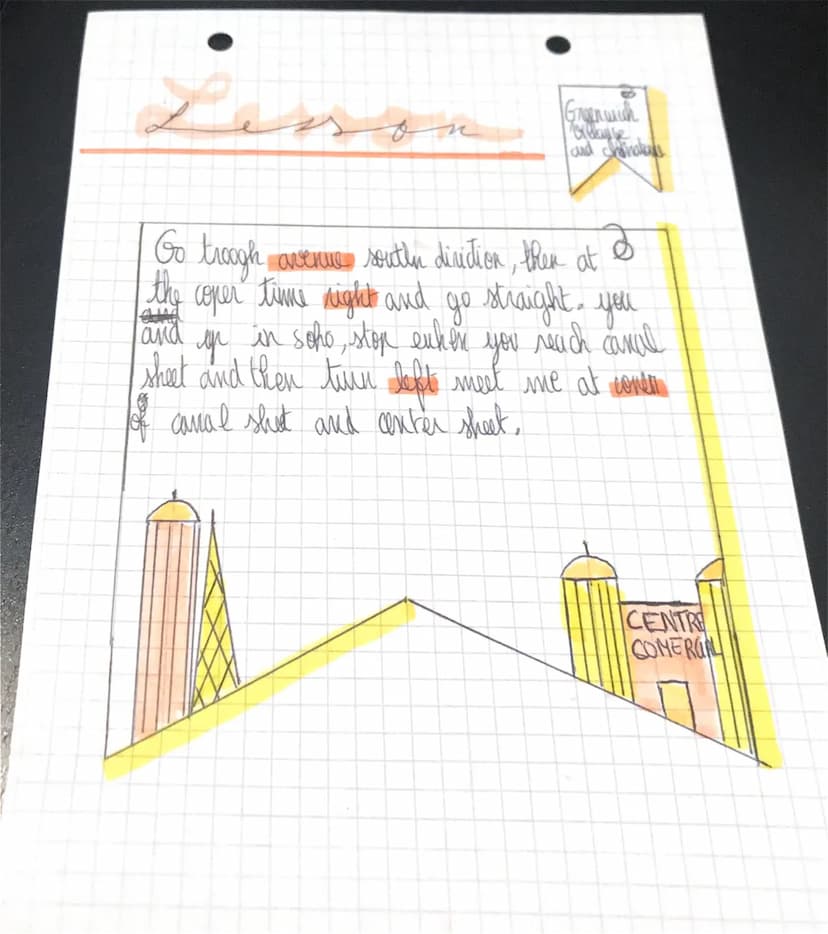 Lesson
Greenwich
Village
and Chinatown
Go troogh avenue south direction, then at
the coper time right and go straight. you
and up in soho, stop when you reach canal
sheet and then turn left meet me at corner
of canal shet and center sheet.
CENTRE
COMERCIAL